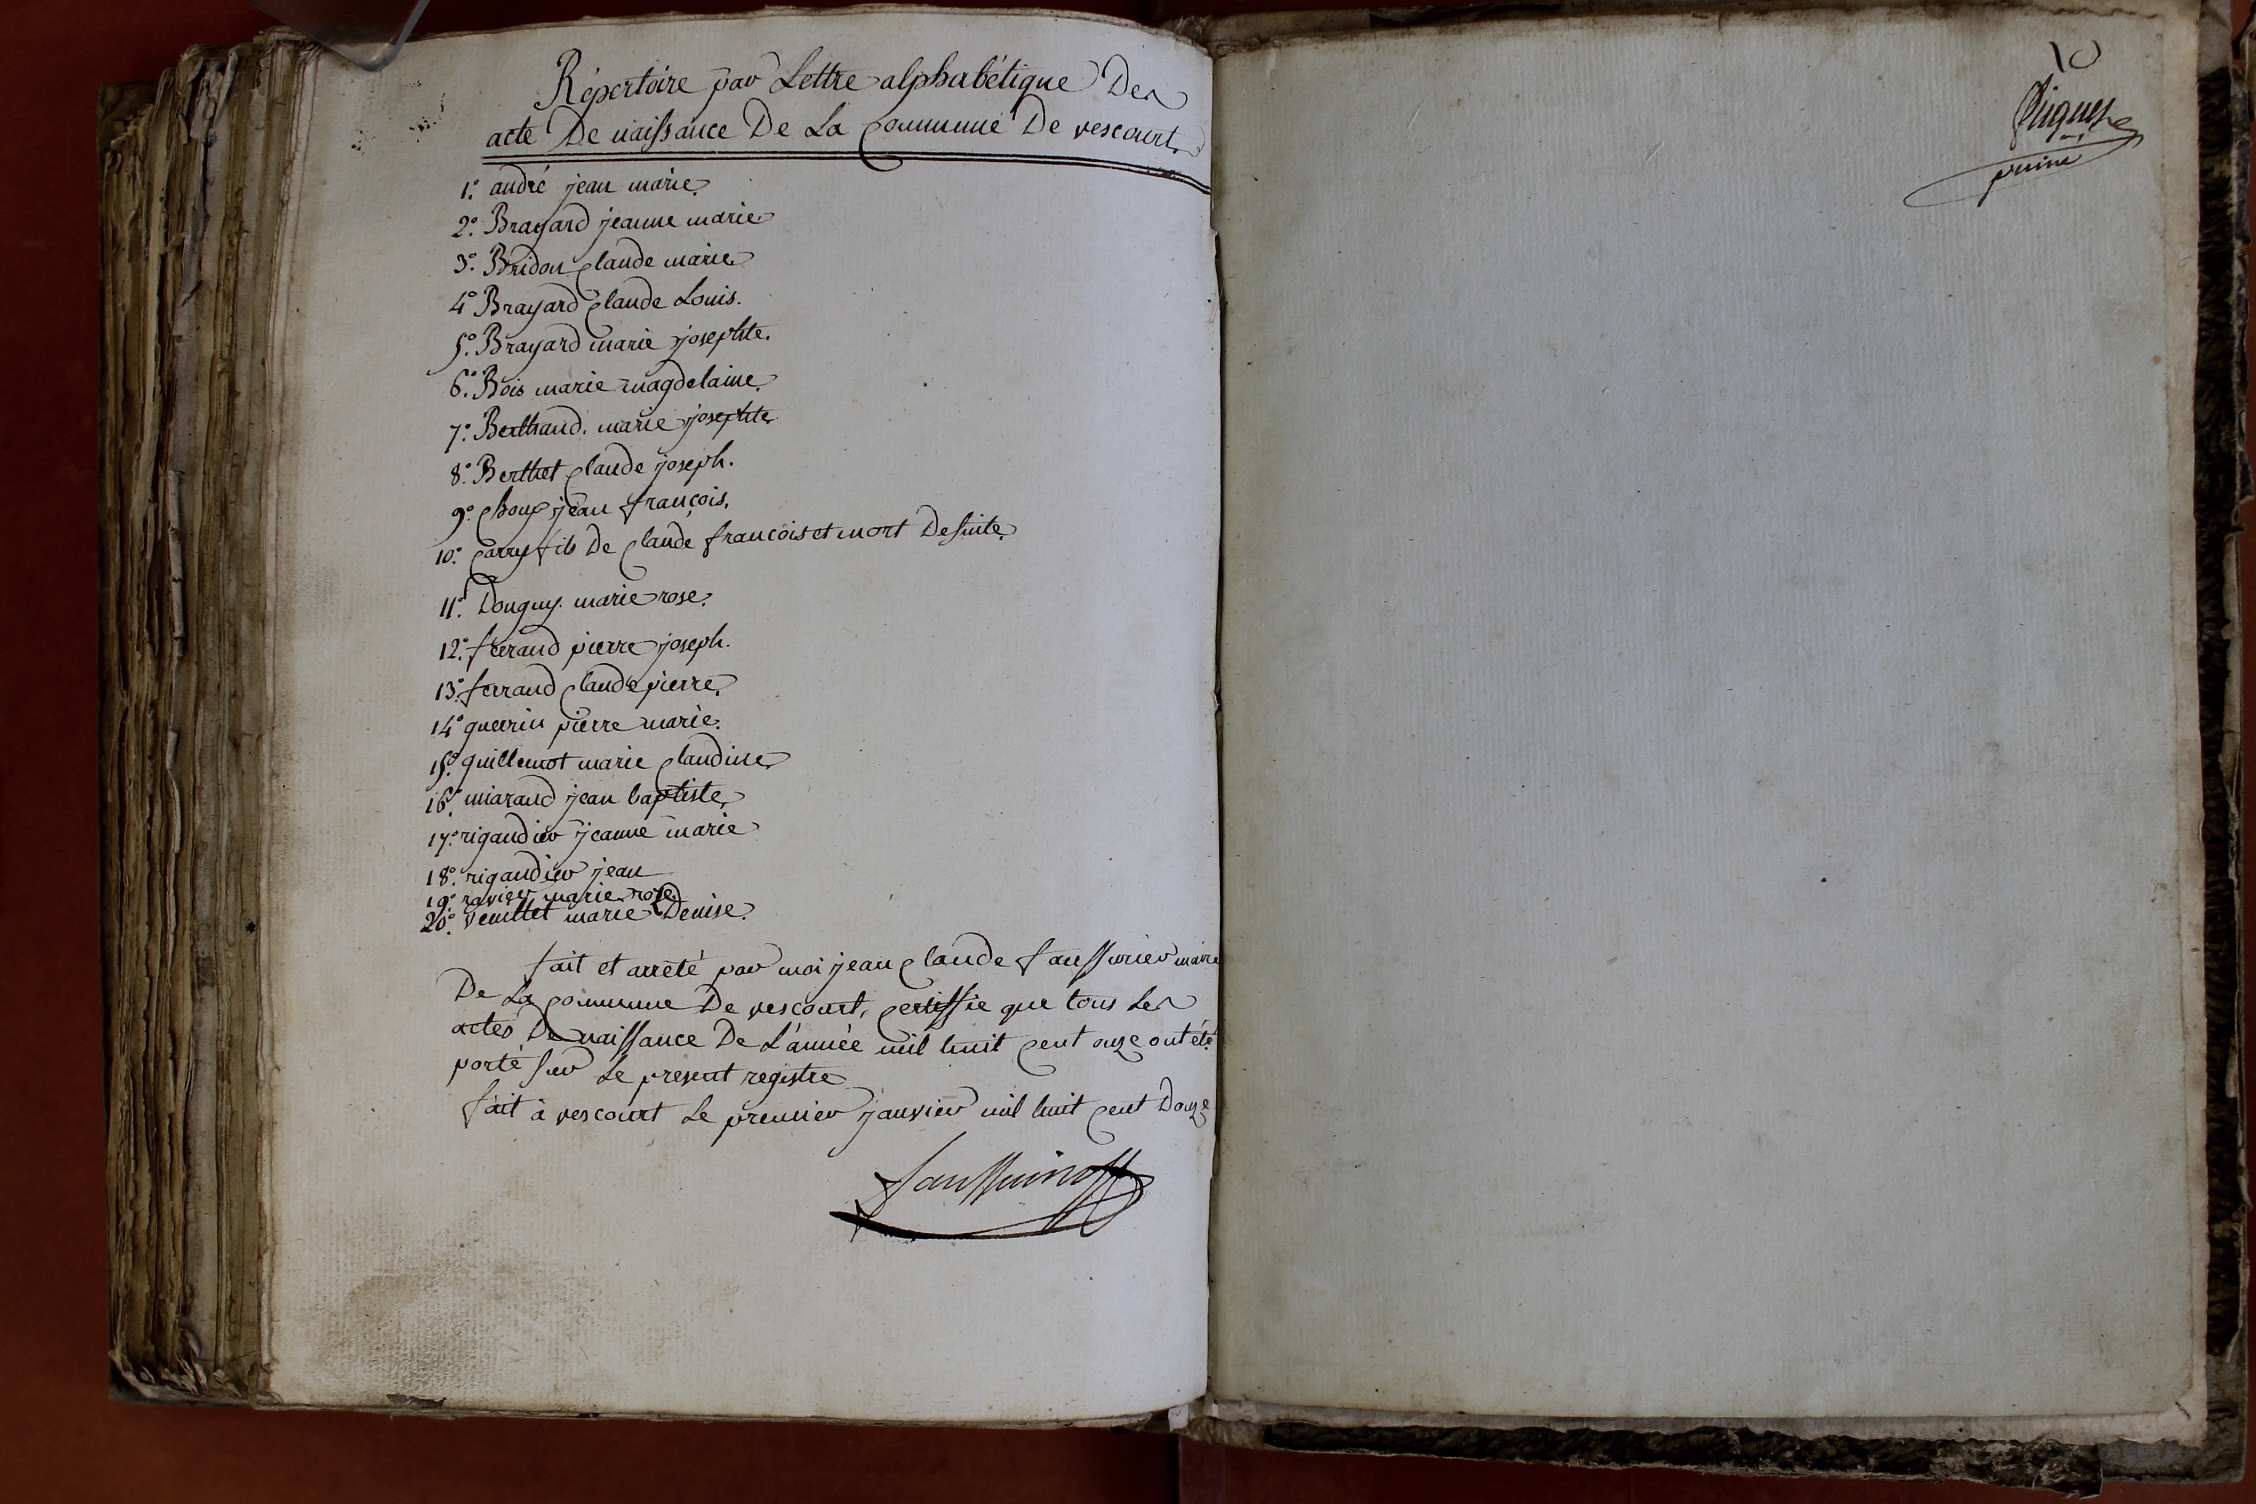 Répertoire par Lettre alphabétique Des
acte De naissance De La Commune De vescourt.
1.° andré jean marie.
2.° Brayard jeanne marie
3.° Bridon Claude marie
4.° Brayard Claude Louis.
5.° Brayard marie josephte.
6.° Bois marie magdelaine.
7.° Berthaud. marie josephte
8.° Berthet Claude joseph.
9.° Choux jean françois.
10.° Carry fils De Claude francois et mort De suite.
11.° Donguy. marie rose.
12.° ferraud pierre joseph.
13.° ferraud Claude pierre.
14.° guerrin pierre marie.
15.° guillemot marie Claudine.
16.° miaraud jean baptiste.
17.° rigaudier jeanne marie
18.° rigaudier jean
19.° ravier marie rose
20.° veuillet marie Denise.
fait et arreté par moi jean Claude faussurier maire
De La Commune De vescourt, Certiffie que tous Les
actes De naissance De L'année mil huit Cent onze ont été
porté sur Le present registre
fait à vescourt Le premier janvier mil huit Cent Douze
10